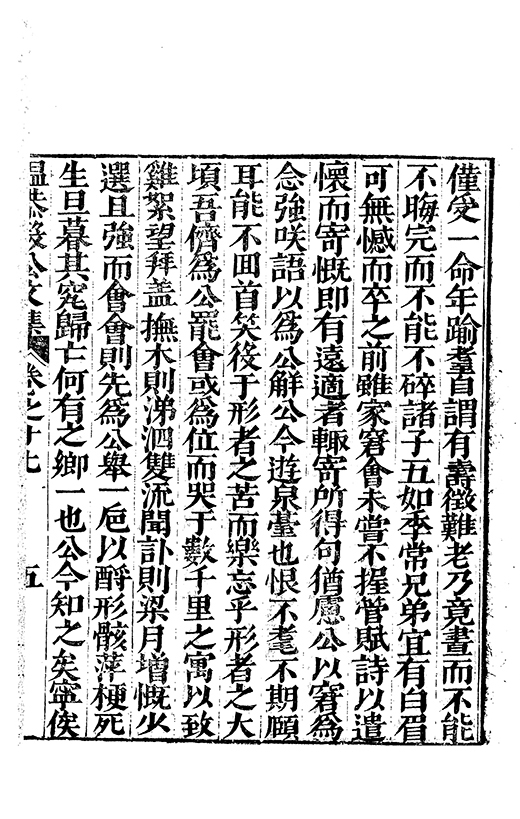 僅受一命年踰耋自謂有壽徵難老乃竟晝而不能
不晦完而不能不碎諸子五如季常兄弟宜有白眉
可無憾而卒之前雖家窘會未嘗不捉管賦詩以遣
懷而寄慨即有遠適者輙寄所得句猶慮公以窘為
念強咲語以為公解公今遊泉臺也恨不耄不期頤
耳能不囬首笑役于形者之苦而樂忘乎形者之大
頃吾儕為公罷會或為位而哭于數千里之寓以致
雞絮望拜盖撫木則涕泗雙流聞訃則梁月增慨少
選且強而會會則先為公舉一巵以酹形骸萍梗死
生旦暮其究歸亡何有之鄉一也公今知之矣寧俟
溫恭毅公文集 卷之十七 五